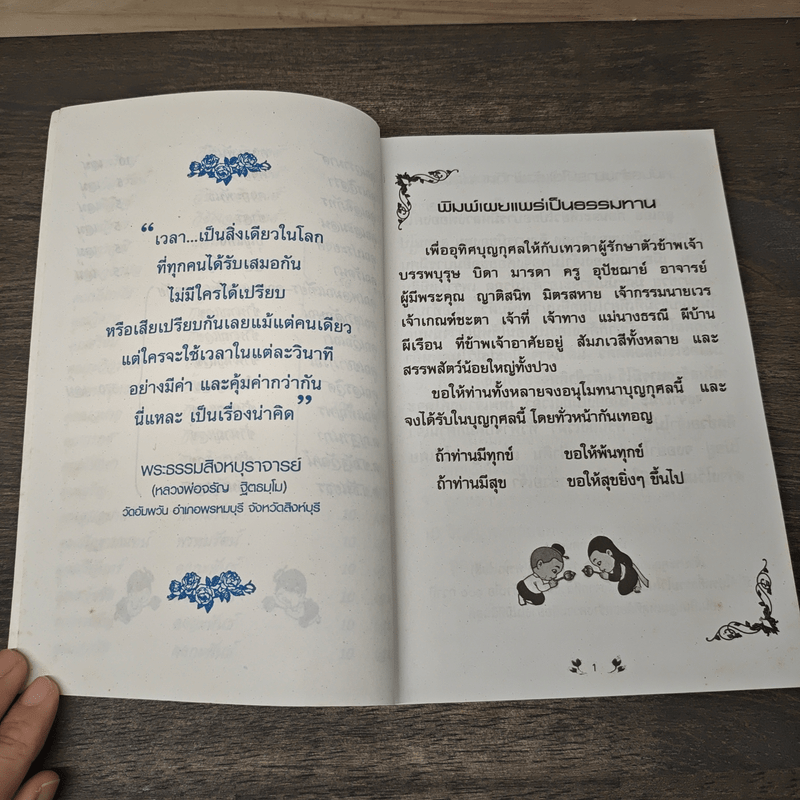 “เวลา...เป็นสิ่งเดียวในโลก
ที่ทุกคนได้รับเสมอกัน
ไม่มีใครได้เปรียบ
หรือเสียเปรียบกันเลยแม้แต่คนเดียว
แต่ใครจะใช้เวลาในแต่ละวินาที
อย่างมีค่า และคุ้มค่ากว่ากัน
นี่แหละ เป็นเรื่องน่าคิด”
พระธรรมสิงหบุราจารย์
(หลวงพ่อจรัญ ฐิตธมฺโม)
วัดอัมพวัน อำเภอพรหมบุรี จังหวัดสิงห์บุรี
พิมพ์เผยแพร่เป็นธรรมทาน
เพื่ออุทิศบุญกุศลให้กับเทวดาผู้รักษาตัวข้าพเจ้า
บรรพบุรุษ บิดา มารดา ครู อุปัชฌาย์ อาจารย์
ผู้มีพระคุณ ญาติสนิท มิตรสหาย เจ้ากรรมนายเวร
เจ้าเกณฑ์ชะตา เจ้าที่ เจ้าทาง แม่นางธรณี ผีบ้าน
ผีเรือน ที่ข้าพเจ้าอาศัยอยู่ สัมภเวสีทั้งหลาย และ
สรรพสัตว์น้อยใหญ่ทั้งปวง
ขอให้ท่านทั้งหลายจงอนุโมทนาบุญกุศลนี้ และ
จงได้รับในบุญกุศลนี้ โดยทั่วหน้ากันเทอญ
ถ้าท่านมีทุกข์ ขอให้พ้นทุกข์
ถ้าท่านมีสุข ขอให้สุขยิ่งๆ ขึ้นไป
1